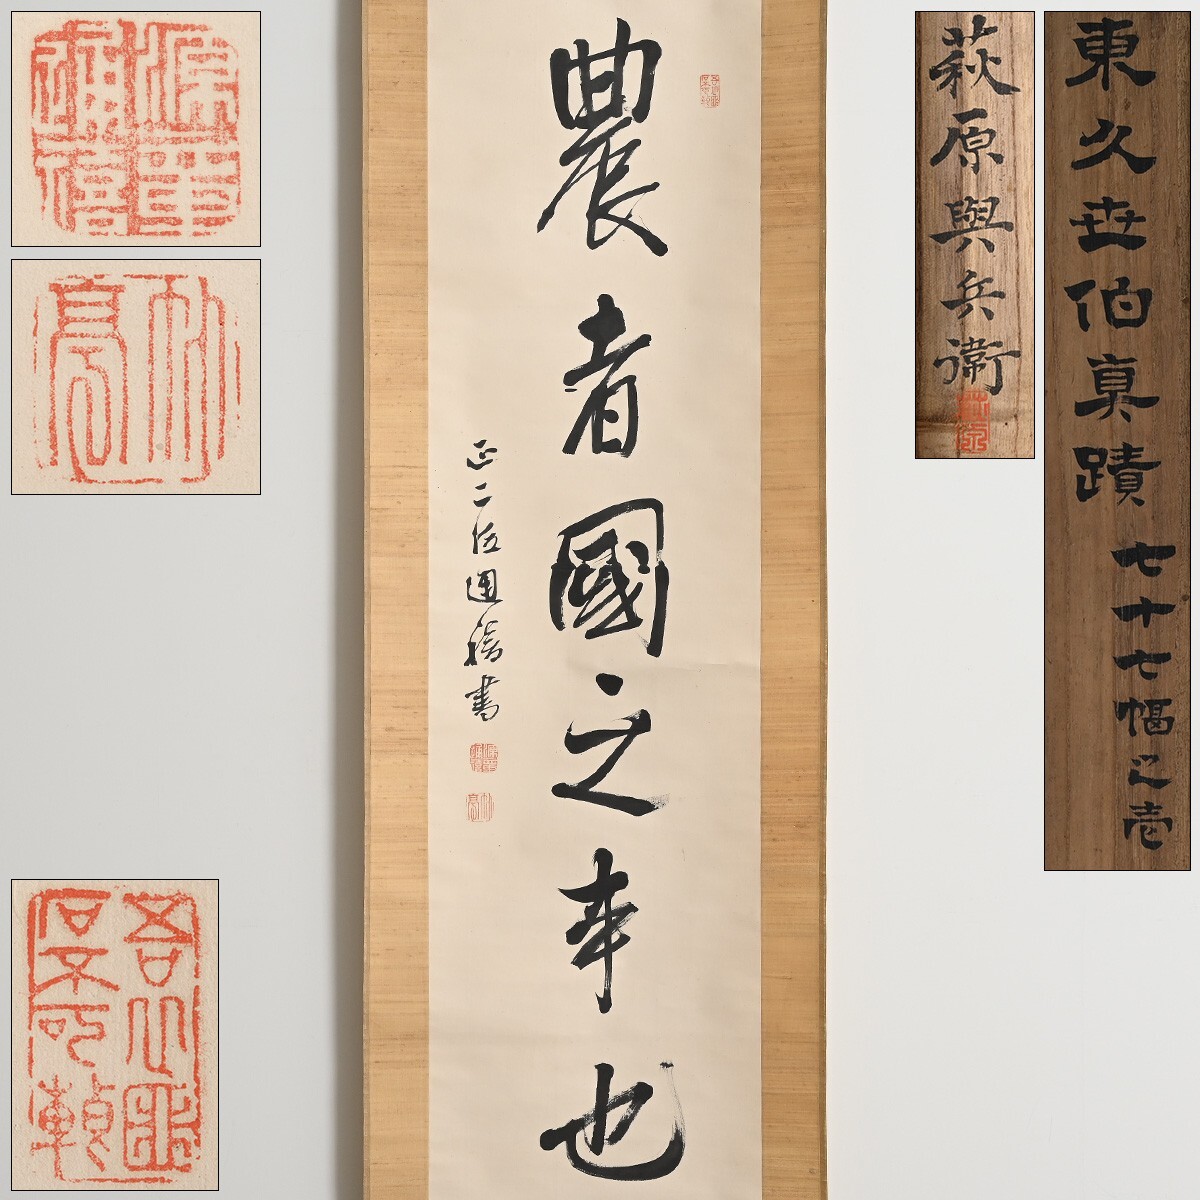 農者國之本也
正二位通禧書
東久世伯真蹟 七十七幅之壱
萩原與兵衛
源印通禧
竹亭